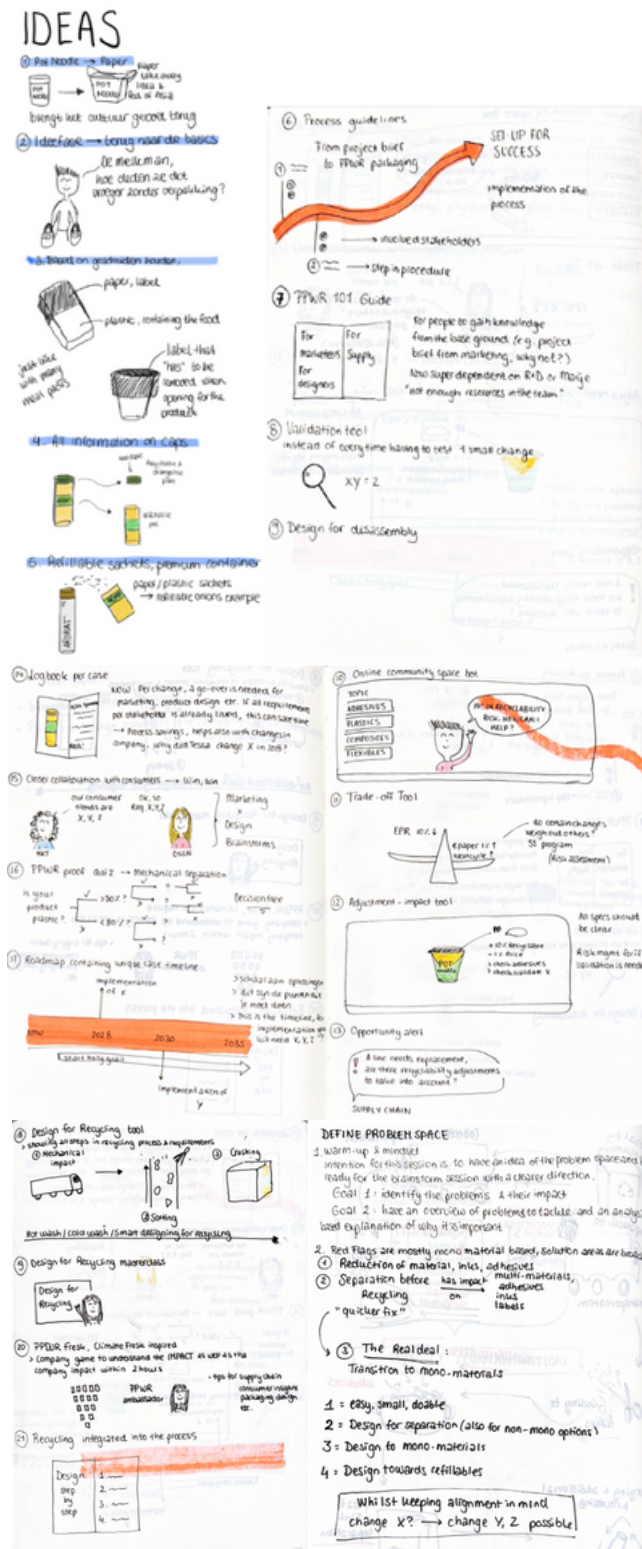 IDEAS
① Pot Noodle → Paper
paper
take away
idea &
POT
NOODLE
brengt het cultuur gevoel terug
② Ideefase → terug naar de basics
De melkman,
hoe deden ze dit
vroeger zonder verpakking?
3. Based on
paper, label
plastic, containing the food
just like
with many
meal pots
label that
"has" to be
removed when
opening for the
product
4. All information on caps
5. Refillable sachets, premium container
paper/plastic sachets
→ refillable onions example
AROMAT
⑥ Process guidelines
From project brief
to PPWR packaging
SET-UP FOR
SUCCESS
①
implementation of the
process
→ involved stakeholders
② → step in procedure
⑦ PPWR 101 Guide
For
marketers
For
designers
For
Supply
For people to gain knowledge
from the base ground (e.g. project
brief from marketing, why not?)
Now super dependent on R+D or
"not enough resources in the team"
⑧ Validation tool
instead of everytime having to test 1 small change
xy = z
⑨ Design for disassembly
⑭ Logbook per case
NOW: Per change, a go-over is needed for
marketing, product design etc. If all requirements
per stakeholder is already listed, this can save time
→ Process savings, helps also with changes in
company, why did Tessa change X in 2023?
⑮ Closer collaboration with consumers → win, win
our consumer
trends are
X, Y, Z
Ok, so
Req. X, Y, Z
Marketing
Design
Brainstorms
⑯ PPWR proof quiz → Mechanical separation
is your
product
plastic?
>80%?
<80%?
Decisiontree
⑰ Roadmap containing unique case timeline
implementation
of X
NOW
2028
2030
2035
> dit zijn de punten die
je moet doen
> this is the timeline, for
implementation you
will need X, Y, Z
implementation of
Y
⑩ Online community space bot
TOPIC
ADHESIVES
PLASTICS
COMPOSITES
FLEXIBLES
HELP?
⑪ Trade-off Tool
EPR 10% ↓
do certain changes
weigh out others?
program
(Risk assessment)
⑫ Adjustment - impact tool
PP
POT
> check adhesives
> check validate X
All specs should
be clear
Risk mgmt for if
validation is needed
⑬ Opportunity alert
A line needs replacement,
are there recyclability adjustments
to take into account?
SUPPLY CHAIN
⑱ Design for Recycling tool
> showing all steps in recycling process & requirements
① Mechanical
impact
② Sorting
③ Crushing
Hot wash / cold wash / Smart designing for recycling
⑲ Design for Recycling masterclass
Design for
Recycling
⑳ PPWR Fresk, Climate Fresk inspired
> Company game to understand the IMPACT as well as the
company impact within 2 hours
PPWR
ambassador
• tips for supply chain
consumer insights
packaging design
etc.
㉑ Recycling integrated into the process
Design
step
by
step
1.
2.
3.
4.
DEFINE PROBLEM SPACE
1. warm-up & mindset
intention for this session is to have an idea of the problem space and
ready for the brainstorm session with a clearer direction.
Goal 1: identify the problems & their impact
Goal 2: have an overview of problems to tackle and an
based explanation of why it is important
2. Red Flags are mostly mono material based, solution areas are
① Reduction of material, inks, adhesives
② Separation before
Recycling
has impact
on
multi-materials,
adhesives
inks
labels
"quicker fix"
③ The Real deal:
Transition to mono-materials
1 = easy, small, doable
2 = Design for separation (also for non-mono options)
3 = Design to mono-materials
4 = Design towards refillables
Whilst keeping alignment in mind
change X? → change Y, Z possible